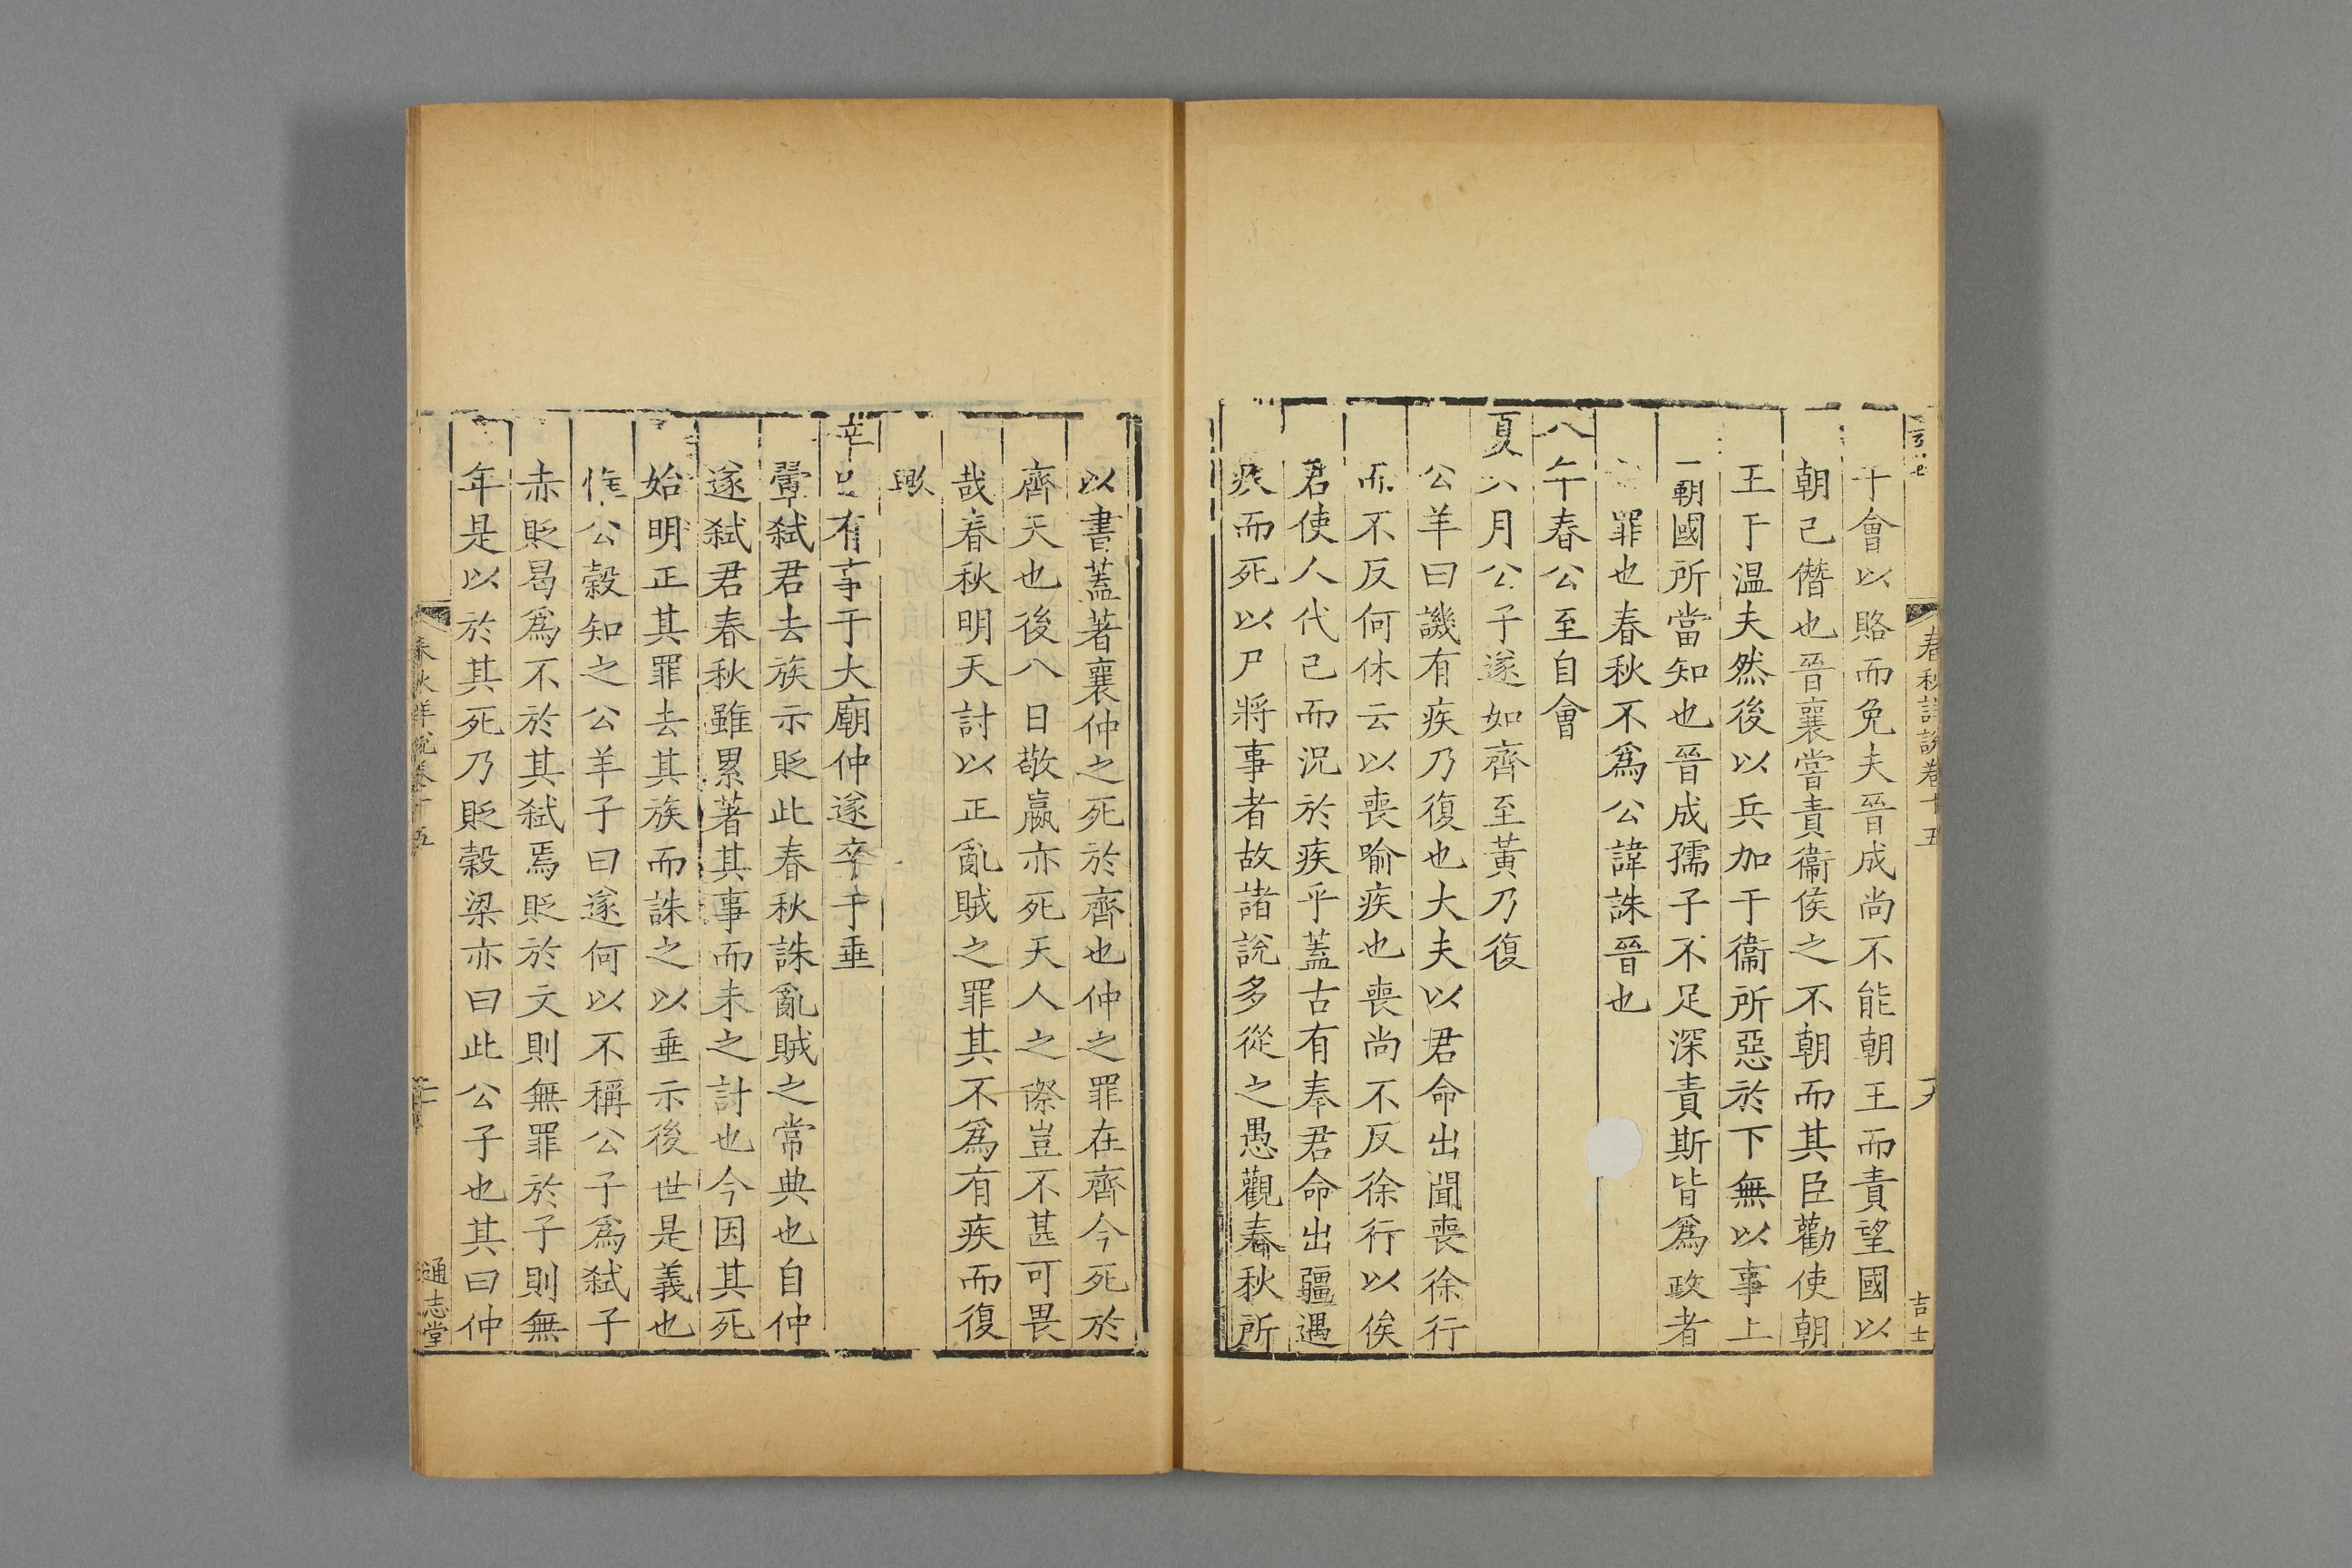 春秋詳說卷十五
吉士
于會以賂而免夫晉成尚不能朝王而責望國以
朝己僭也晉襄嘗責衞侯之不朝而其臣勸使朝
王于温夫然後以兵加于衞所惡於下無以事上
朝國所當知也晉成孺子不足深責斯皆爲政者
罪也春秋不爲公諱誅晉也
八年春公至自會
夏六月公子遂如齊至黃乃復
公羊曰譏有疾乃復也大夫以君命出聞喪徐行
而不反何休云以喪喻疾也喪尚不反徐行以俟
君使人代己而況於疾乎蓋古有奉君命出疆遇
疾而死以尸將事者故諸說多從之愚觀春秋所
以書蓋著襄仲之死於齊也仲之罪在齊今死於
齊天也後八日敬嬴亦死天人之際豈不甚可畏
哉春秋明天討以正亂賊之罪其不爲有疾而復
歟
辛巳有事于大廟仲遂卒于垂
翬弑君去族示貶此春秋誅亂賊之常典也自仲
遂弑君春秋雖累著其事而未之討也今因其死
始明正其罪去其族而誅之以垂示後世是義也
惟公穀知之公羊子曰遂何以不稱公子爲弑子
赤貶曷爲不於其弑焉貶於文則無罪於子則無
年是以於其死乃貶穀梁亦曰此公子也其曰仲
春秋詳說卷十五
通志堂